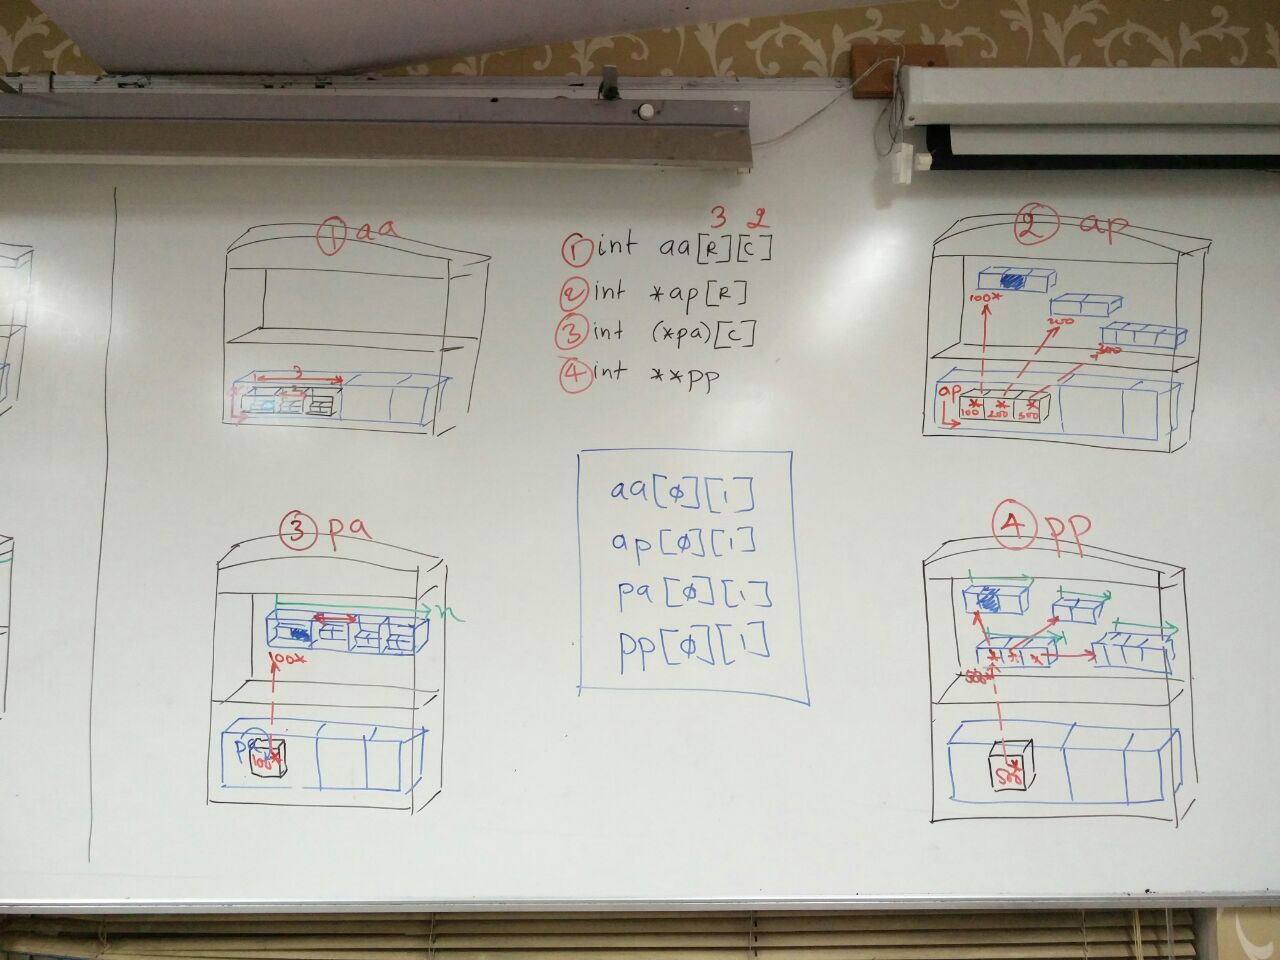 ① aa
3 2
① int aa[R][C]
② int *ap[R]
③ int (*pa)[C]
④ int **pp
② ap
100*
200
300
ap
* * *
100 200 300
3
2
aa[0][1]
ap[0][1]
pa[0][1]
pp[0][1]
③ pa
n
100*
pa
100*
④ pp
* * *
500*
500*